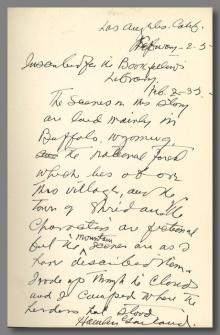 Los Angeles. Calif.
2-5-
Inscribed for the
Library.
Feb. 2-35.
The scenes in this story
are laid mainly in
Buffalo, Wyoming,
the national forest
which lies above
this village, and the
town of
characters are fictional
but the mountain scenes are as I
have described them.
I rode up through the clouds
and I camped where the
herders had stood
Hamlin Garland.